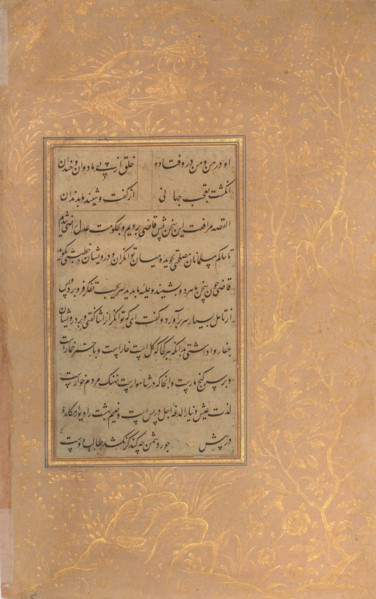 او در من و من درو فتاده خلق از پی ما دوان و خندان
انگشت تعجب جهانی از گفت و شنید ما بدندان
القصه مرافعت این سخن پیش قاضی بردیم و بحکومت عدل راضی شدیم
تا حاکم مسلمانان مصلحتی بجوید و میان توانگران و درویشان
قاضی چون سخن ما بشنید و حلیه ما بدید سر بجیب تفکر فرو برد و پس
از تامل بسیار سر برآورد و گفت ای که توانگر را ثنا گفتی و بر درویشان
جفا روا داشتی بدانکه هر کجا که گل است خار است و با خمر خمار است
و بر سر گنج مار است و آنجا که در شاهوار است نهنگ مردم خوار است
لذت عیش دنیا را لدغه اجل در پس است و نعیم بهشت را دیوار مکاره
در پیش جور دشمن چه کند گر نکشد طالب دوست